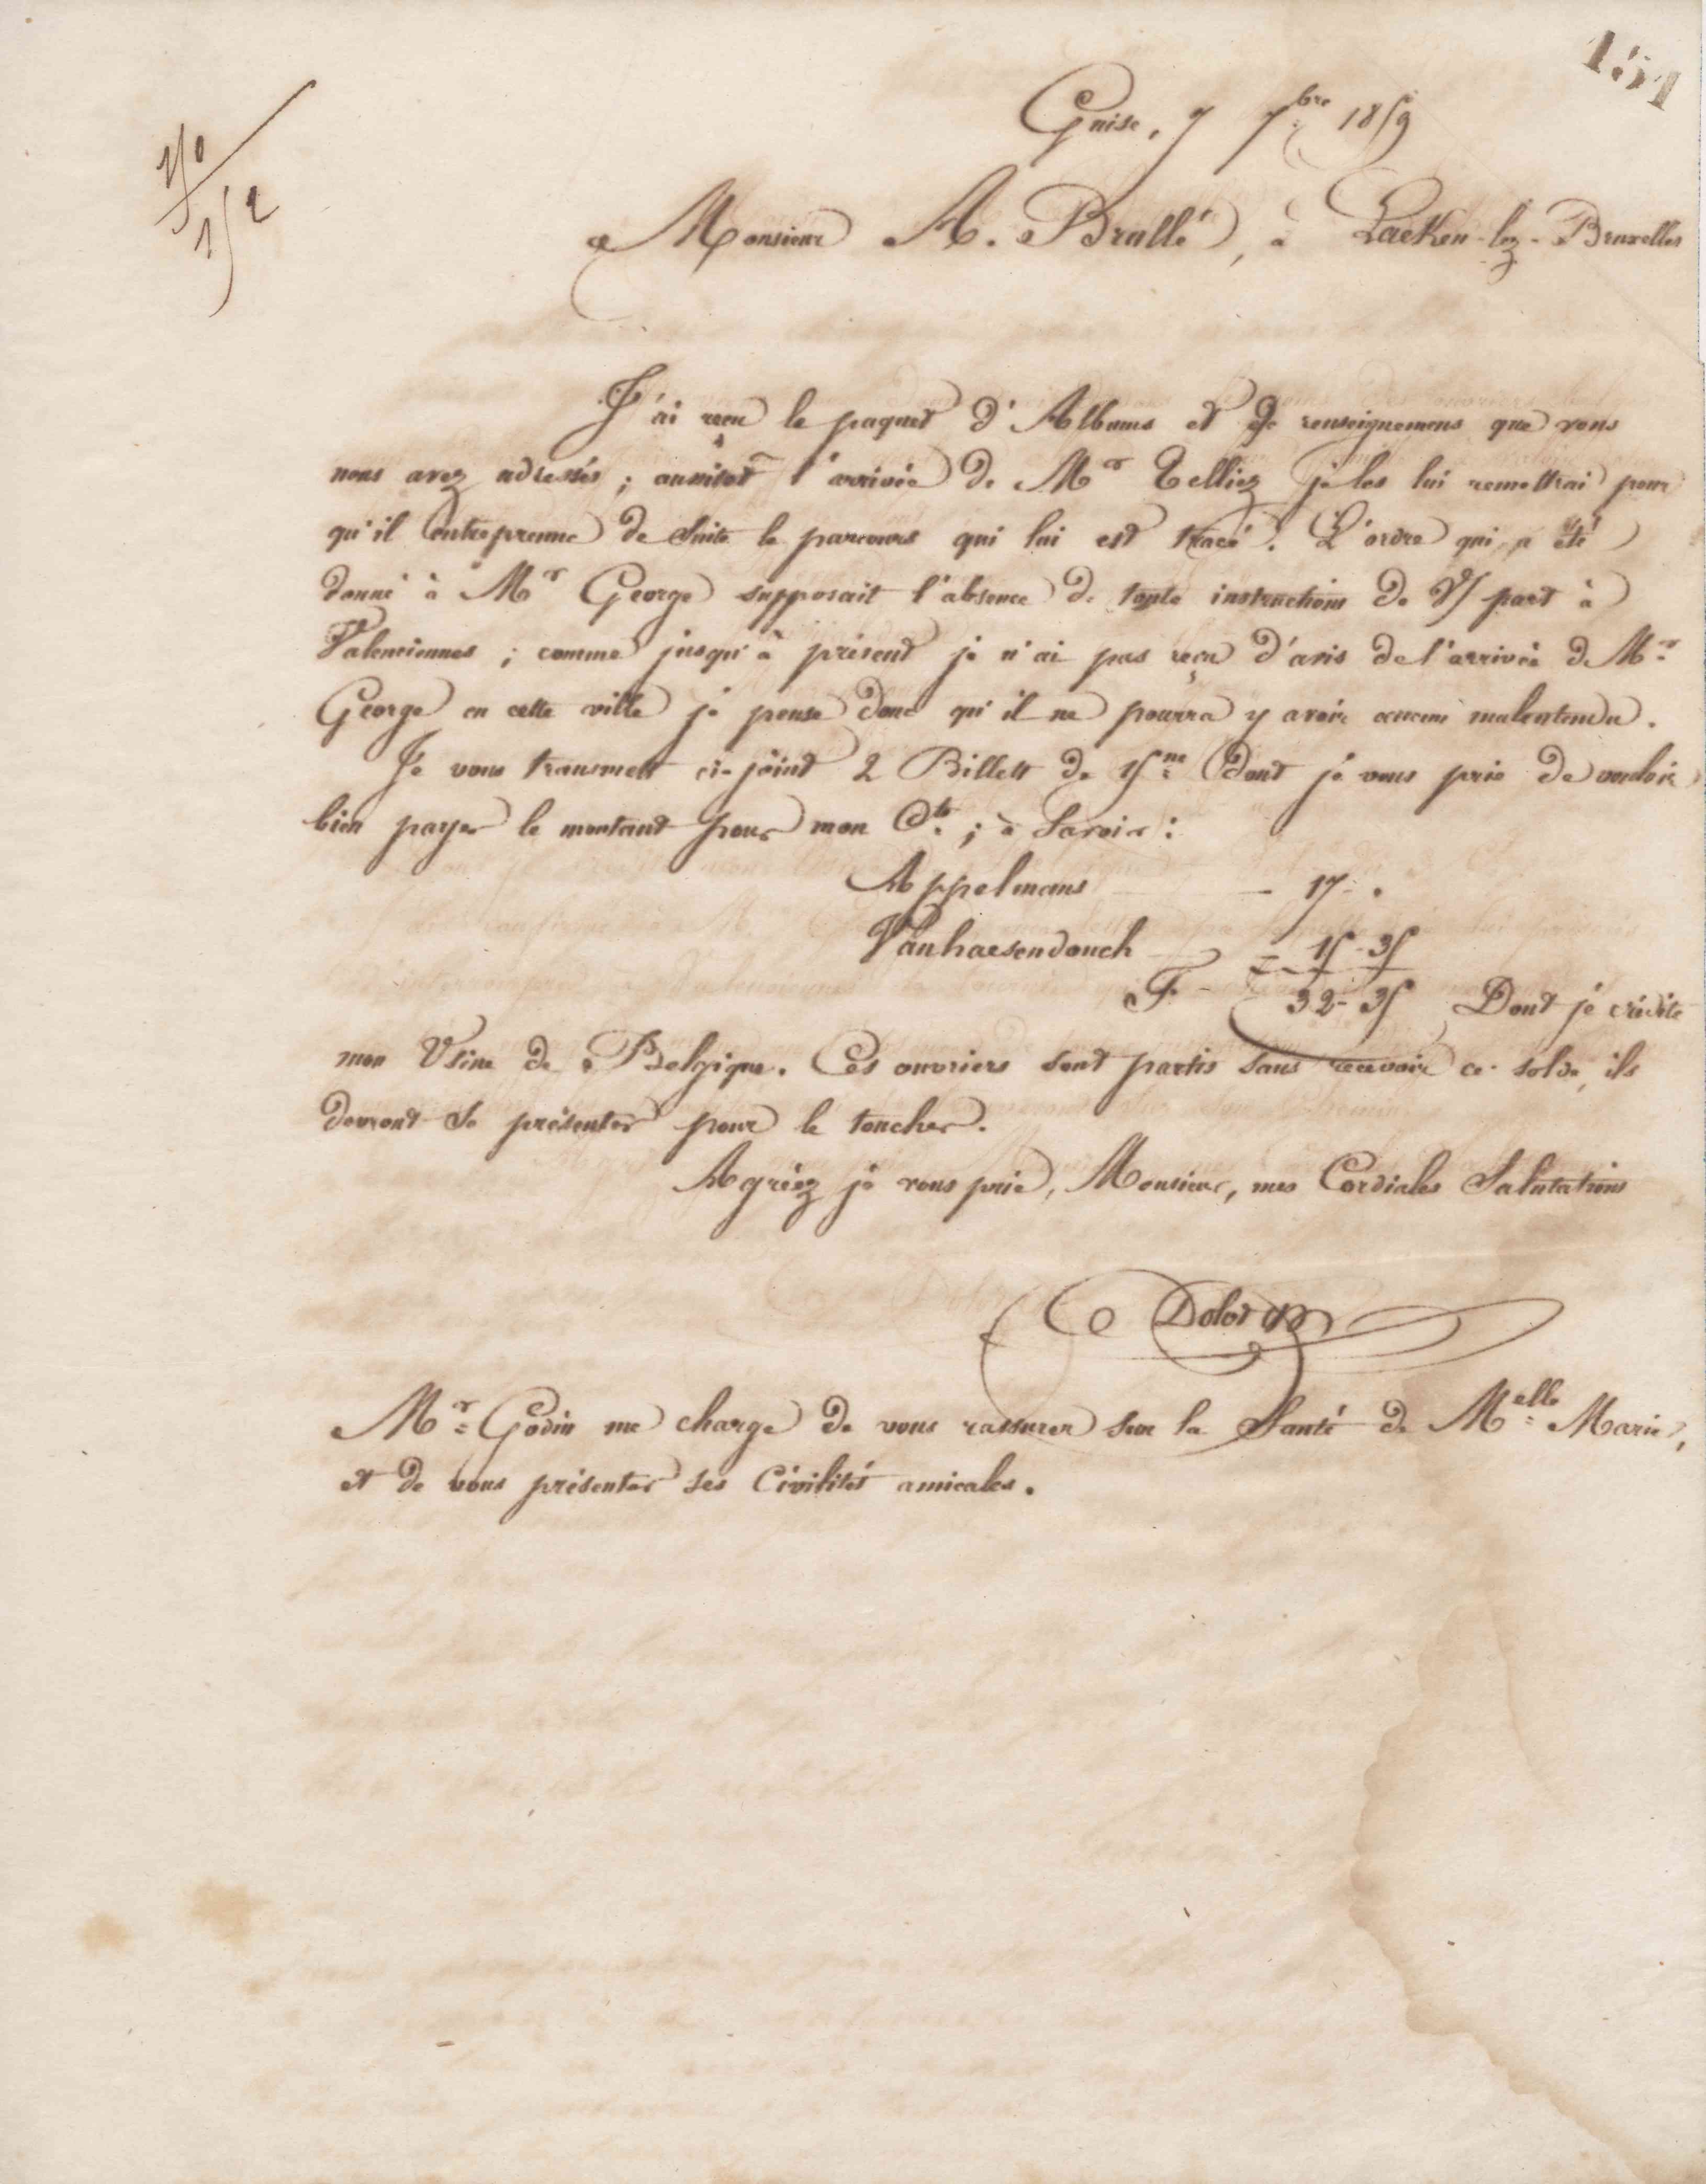 151
Guise, 7 7bre 1859
150
152
Monsieur A. Brullé, à Laeken-lez-Bruxelles
J'ai reçu le paquet d'Albums et de renseignemens que vous
nous avez adressés ; aussitôt l'arrivée de Mr Telliez je les lui remettrai pour
qu'il entreprenne de suite le parcours qui lui est tracé. L'ordre qui a été
donné à Mr George supposait l'absence de toute instructions de V/ part à
Valenciennes ; comme jusqu'à présent je n'ai pas reçu d'avis de l'arrivée de Mr
George en cette ville je pense donc qu'il ne pourra y avoir aucun malentendu.
Je vous transmets ci-joint 2 Billets de 15ne dont je vous prie de vouloir
bien payer le montant pour mon Cte ; à Savoir :
Appelmans - 17 - .
Vanhaesendonch = 15 - 35
F. 32 - 35 Dont je crédite
mon Usine de Belgique. Ces ouvriers sont partis sans recevoir ce solde, ils
devront se présenter pour le toucher.
Agréez je vous prie, Monsieur, mes Cordiales Salutations
Dolot
Mr Godin me charge de vous rassurer sur la Santé de Melle Marie,
et de vous présenter ses Civilités amicales.